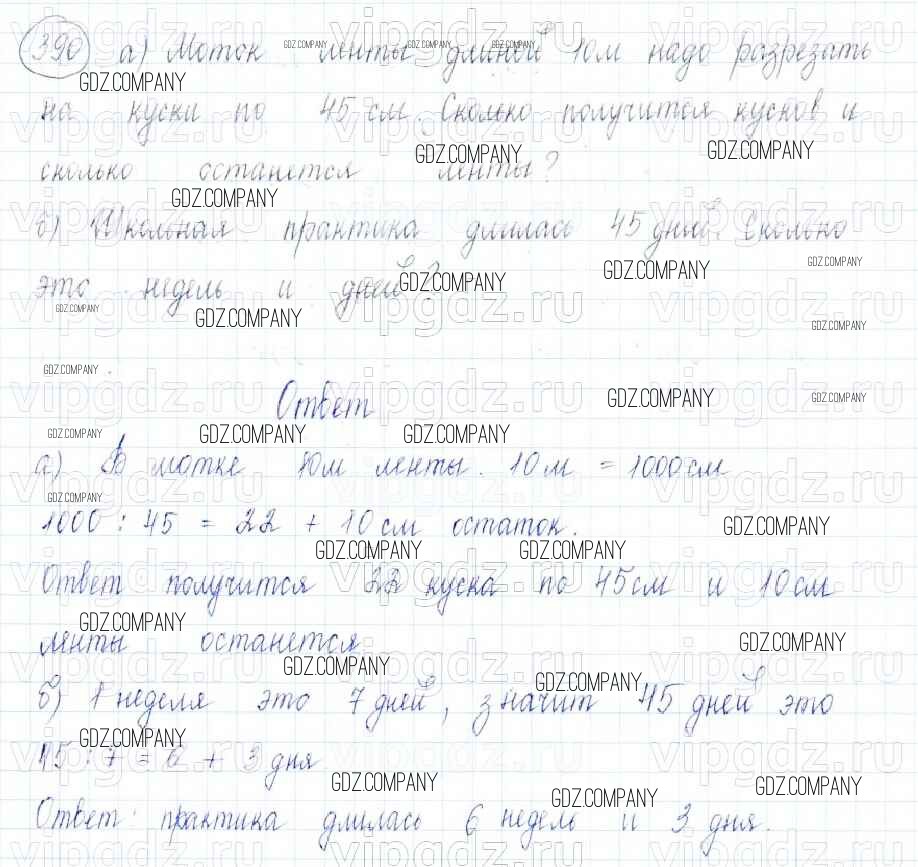 390 а) Моток ленты длиной 10м надо разрезать
на куски по 45 см. Сколько получится кусков и
сколько останется ленты?
б) Школьная практика длилась 45 дней. Сколько
это недель и дней?
Ответ
а) В мотке 10м ленты. 10м = 1000см
1000 : 45 = 22 + 10 см остаток.
Ответ получится 22 куска по 45см и 10см
ленты останется
б) 1 неделя это 7 дней, значит 45 дней это
45 : 7 = 6 + 3 дня
Ответ: практика длилась 6 недель и 3 дня.
GDZ.COMPANY
vipgdz.ru